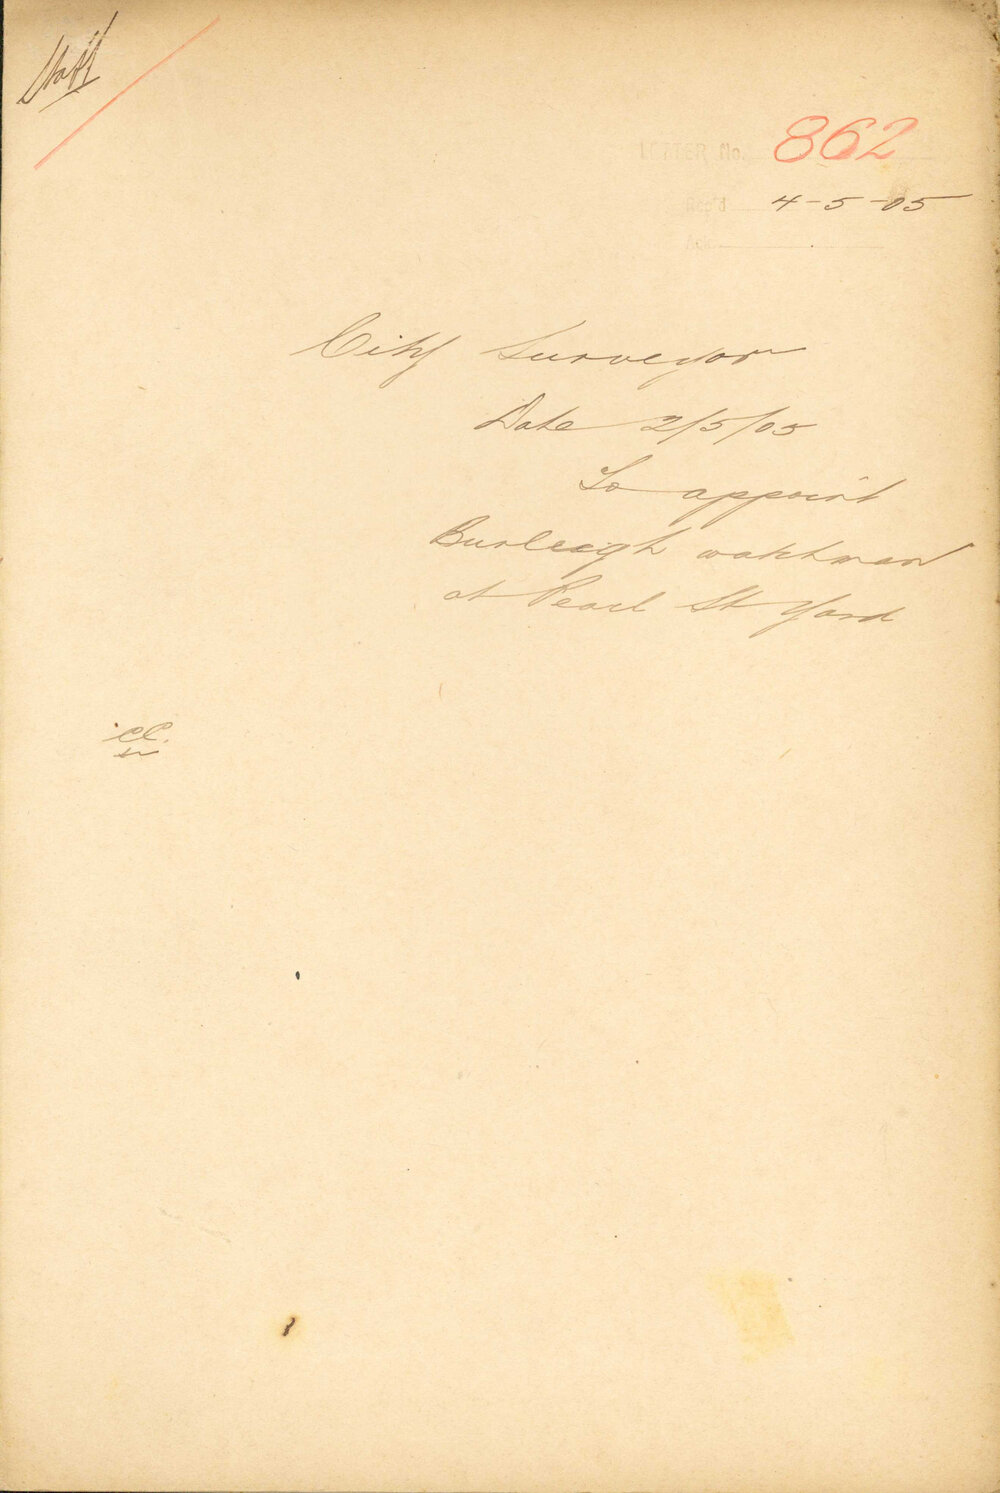 Staff
LETTER No. 862
Rec'd 4-5-05
Ack.
City Surveyor
Date 2/5/05
To appoint
Burleigh watchman
at Pearl St Yard
CC.